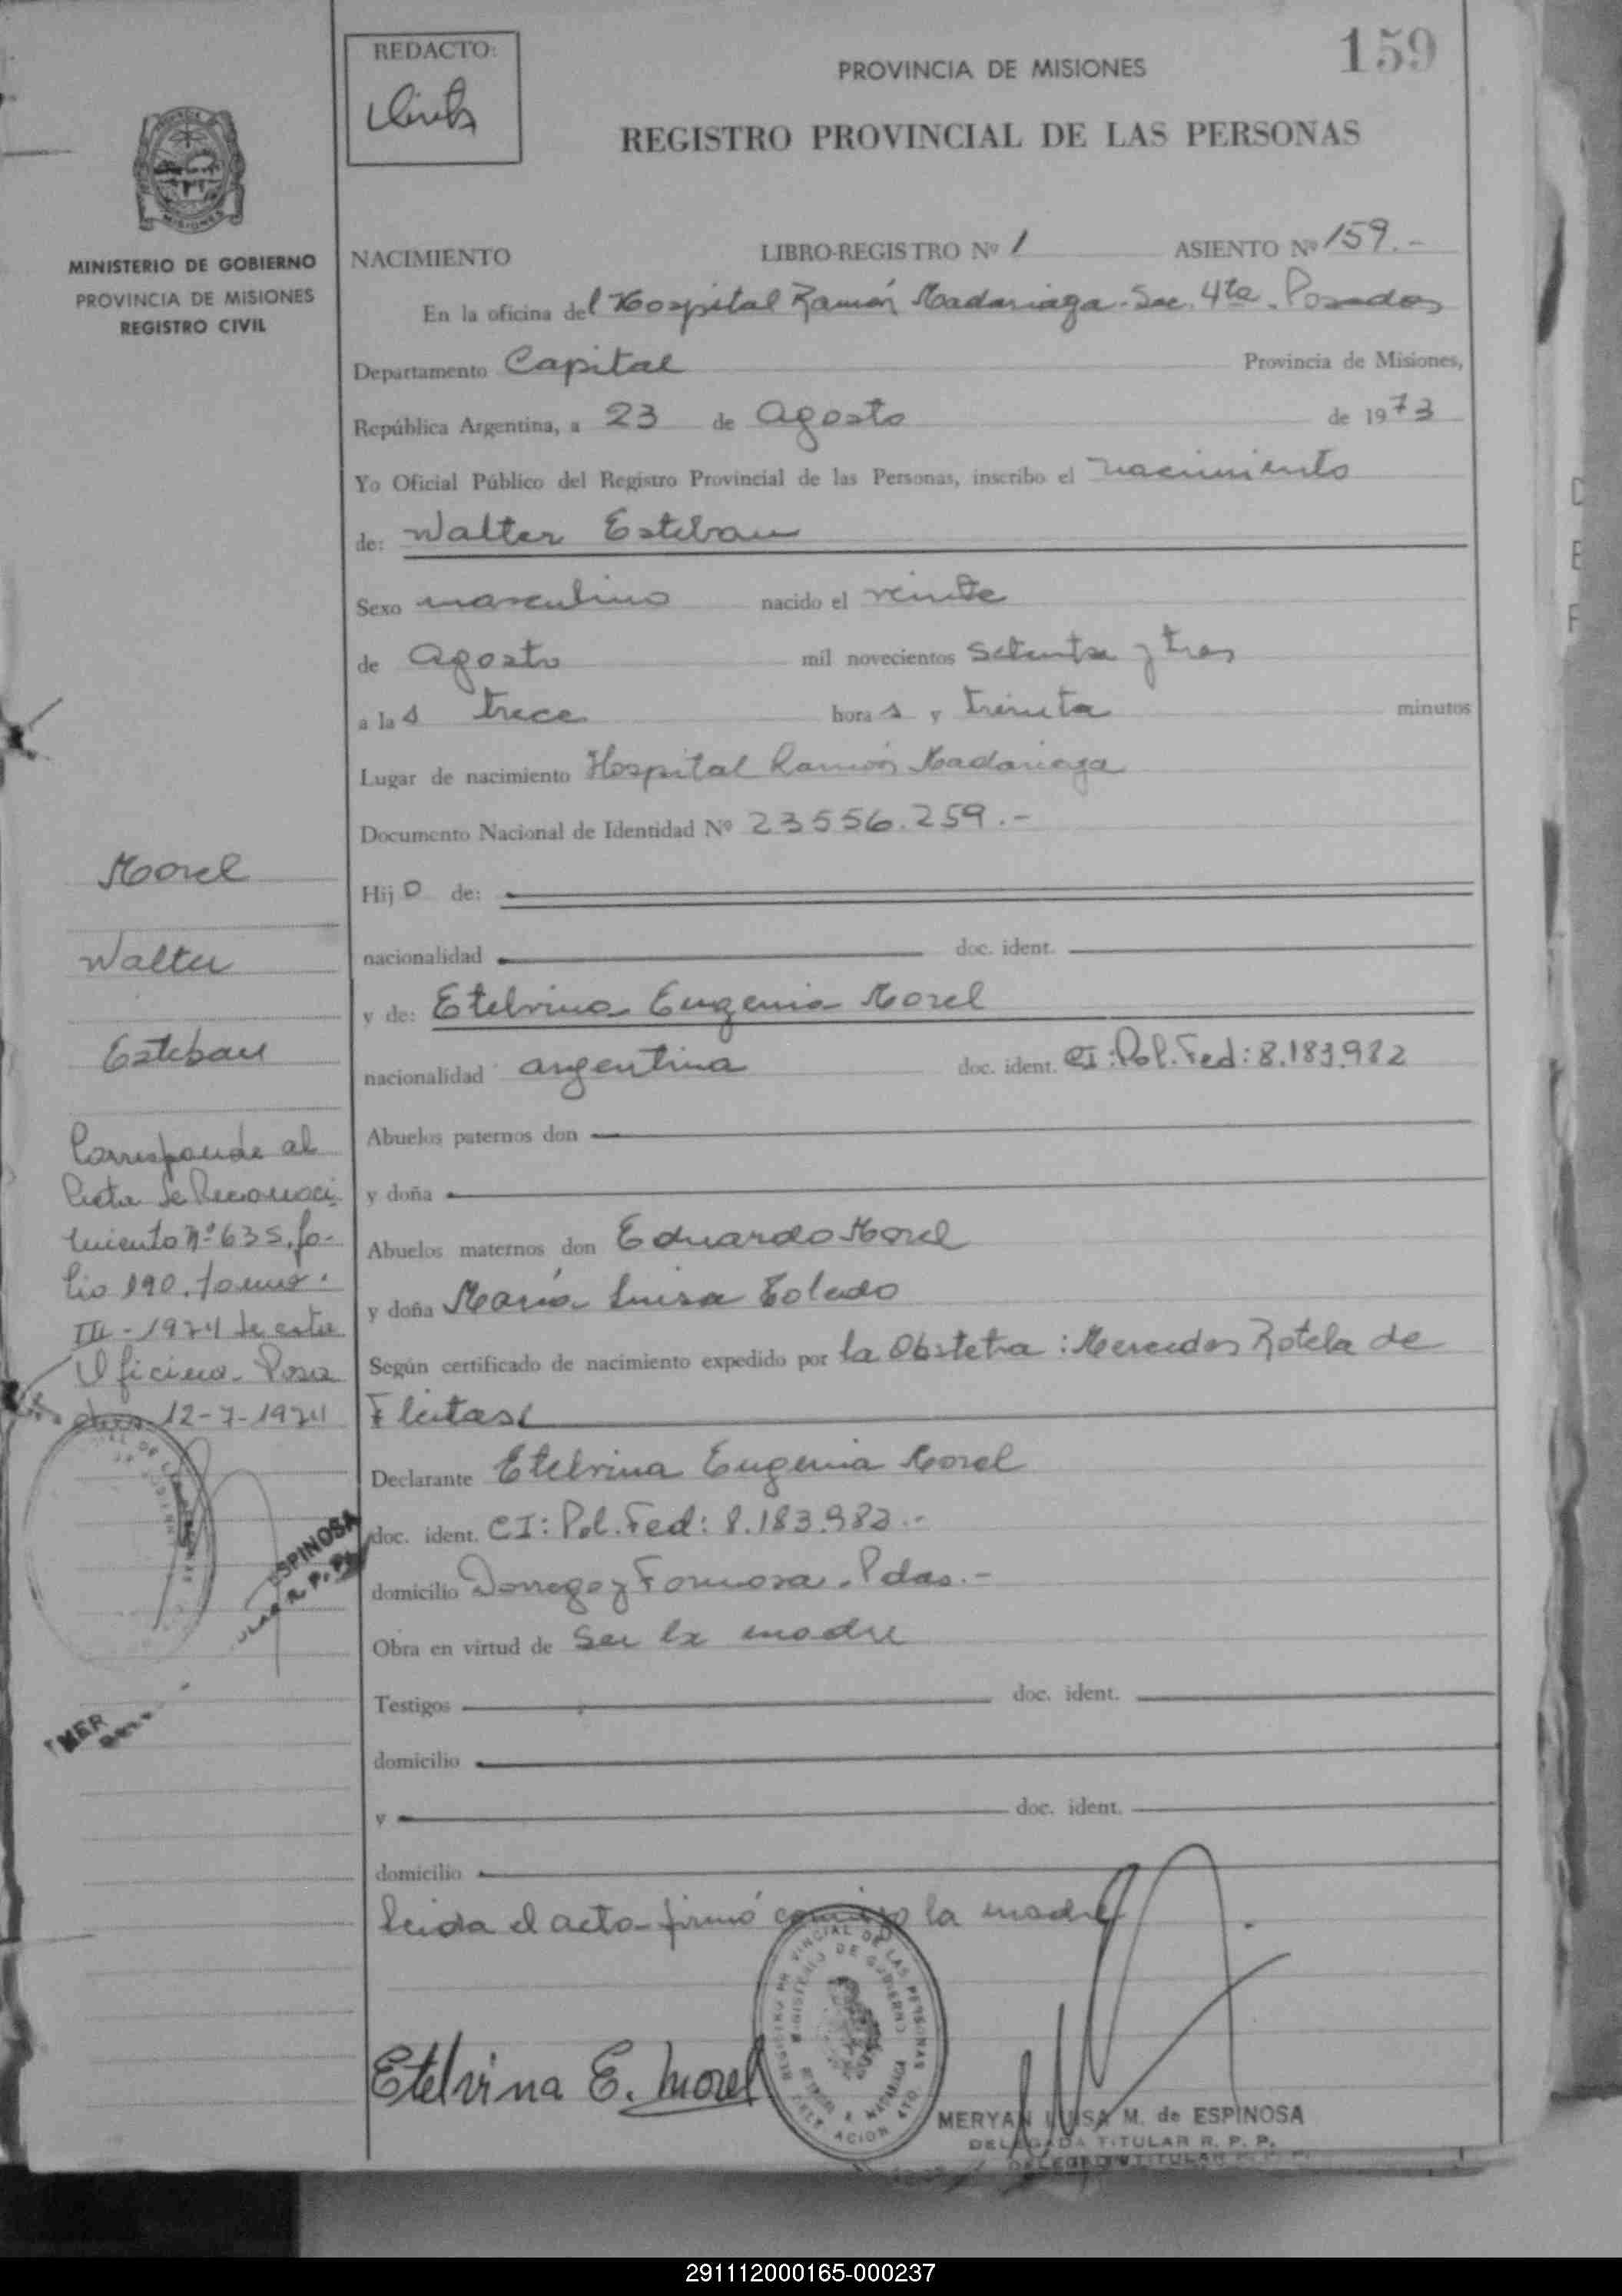 REDACTO:
159
PROVINCIA DE MISIONES
REGISTRO PROVINCIAL DE LAS PERSONAS
MISIONES
MINISTERIO DE GOBIERNO
PROVINCIA DE MISIONES
REGISTRO CIVIL
NACIMIENTO LIBRO-REGISTRO Nº 1 ASIENTO Nº 159.-
En la oficina del Hospital Ramón Madariaga - Sec. 4ta. Posadas
Departamento Capital Provincia de Misiones,
República Argentina, a 23 de Agosto de 1973
Yo Oficial Público del Registro Provincial de las Personas, inscribo el nacimiento
de: Walter Esteban
Sexo masculino nacido el veinte
de Agosto mil novecientos setenta y tres
a las trece horas y treinta minutos
Lugar de nacimiento Hospital Ramón Madariaga
Documento Nacional de Identidad Nº 23556.259.-
Hijo de:
nacionalidad doc. ident.
y de: Etelvina Eugenia Morel
nacionalidad argentina doc. ident. CI: Pol. Fed: 8.183.982
Abuelos paternos don
y doña
Abuelos maternos don Eduardo Morel
y doña María Luisa Toledo
Según certificado de nacimiento expedido por la Obstetra: Mercedes Rotela de
Fleitas
Declarante Etelvina Eugenia Morel
doc. ident. CI: Pol. Fed: 8.183.982.-
domicilio Dorrego y Formosa. Pdas.-
Obra en virtud de ser la madre
Testigos doc. ident.
domicilio
y doc. ident.
domicilio
Leida el acta firmó conmigo la madre
Morel
Walter
Esteban
Corresponde al
Acta de Reconoci-
miento Nº 635, fo-
lio 190, tomo
III - 1974 de esta
Oficina. Posa
das 12-7-1974
ESPINOSA
ULAR R. P. P.
Etelvina E. Morel
REGISTRO PROVINCIAL DE LAS PERSONAS
MINISTERIO DE GOBIERNO
MERYAN LUISA M. de ESPINOSA
DELEGADA TITULAR R. P. P.
291112000165-000237